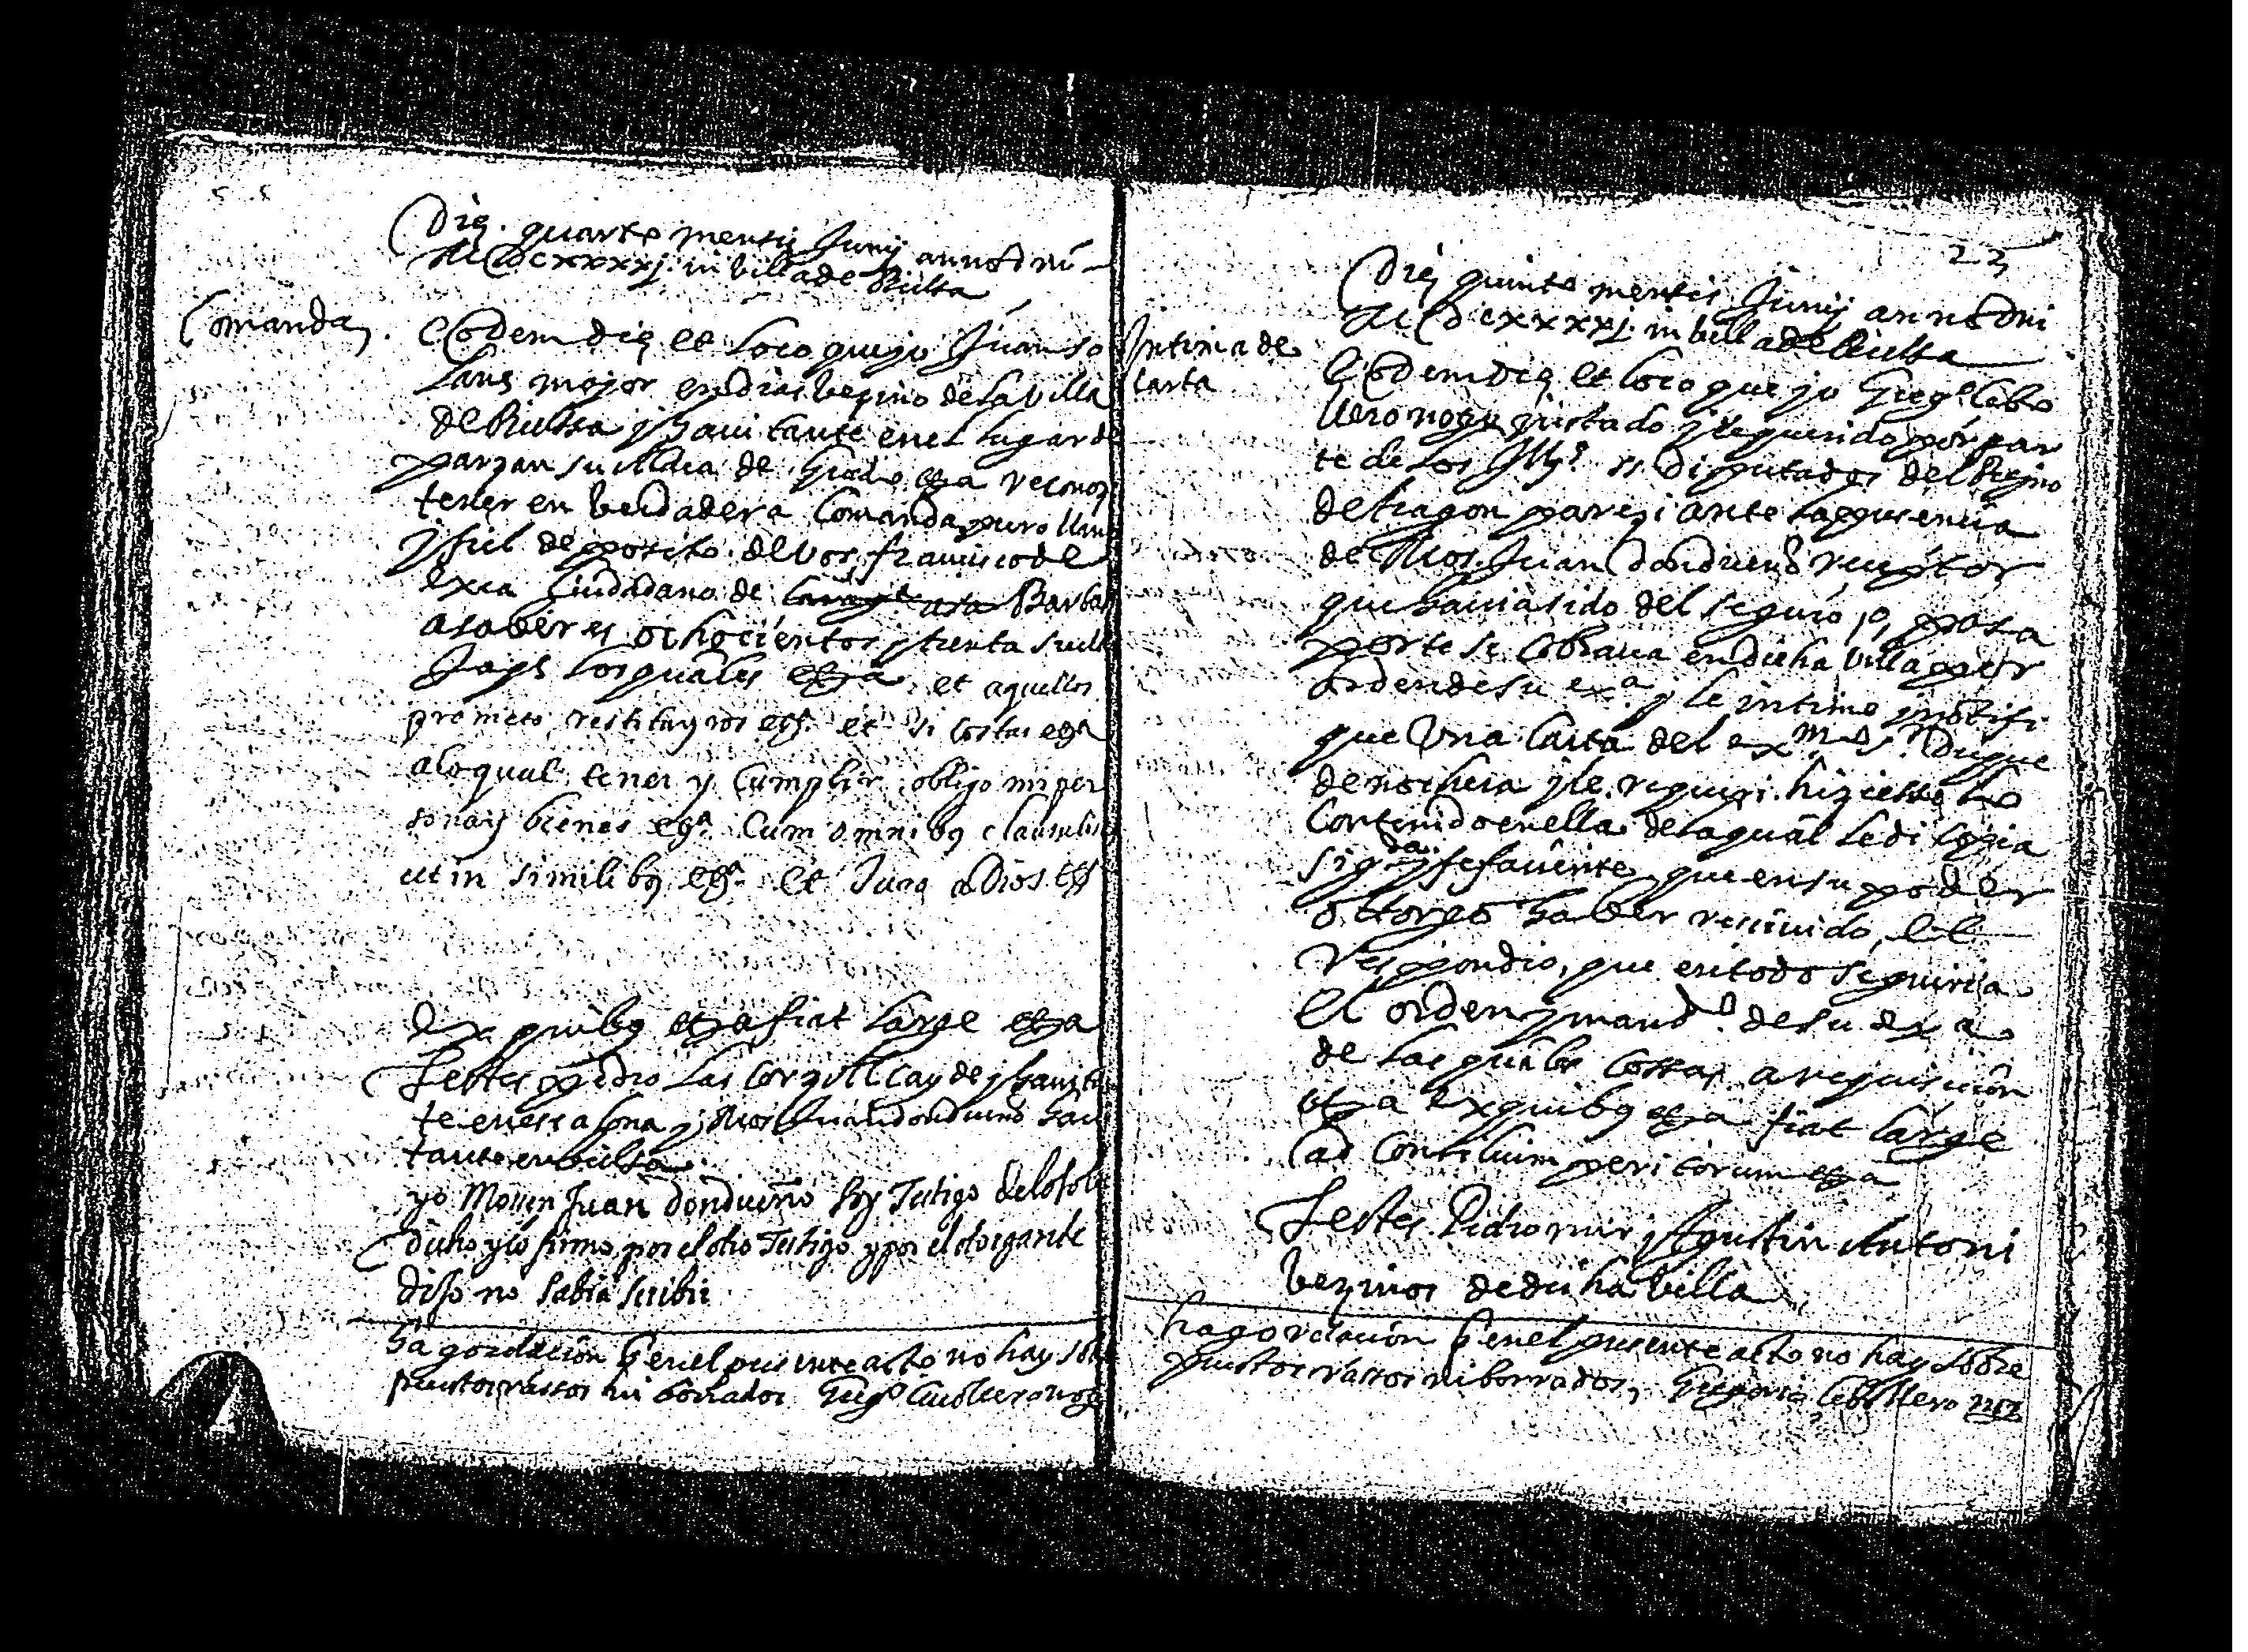 Die quarto mensis Junij anno dni
MDCxxxxj in billa de Bielsa
Comanda
Eodem die et loco que yo Juan so
lans major en dias bezino de la villa
de Bielsa y hauitante en el lugar de
parzan su aldea de Grado etza reconoz
tener en berdadera Comanda puro llano
y fiel deposito de vos francisco de
exea Ciudadano de Barbas
a saber es ochocientos y trenta sueld
Jaqs los quales etza et aquellos
prometo restituyros etza et si costas etza
a lo qual tener y Cumplir obligo mi per
sona y bienes etza Cum omnibq clausulis
ut in similibq etza et Jura a Dios etza
Ex quibq etza fiat large etza
Testes pedro Las Corz y hauitan
te en y Mos Juan Dondueño haui
tante en bielsa
yo Mossen Juan Dondueño soy Testigo de lo sobre
dicho y lo firmo por el otro Testigo y por el otorgante
dijo no sabia scribir
hago relacion q en el presente acto no hay sobre
puestos rassos ni borrados Gregº Cauallero notº
22
Die quinto mensis Junij anno dni
MDCxxxxj in billa de Bielsa
Intima de
carta
Eodem die et loco que yo Gregº Caba
llero notº justado y requerido por par
te de los Illes ss diputados del Reyno
de Aragon parezi ante la presencia
de Mos. Juan Dondueño receptor
que hauia sido del seguro, o, passa
porte se Cobraua en dicha villa por
orden de su exª y le intime y notifi
que Una Carta del exmo Sr Duque
de nochera y le requeri hiziesse lo
Contenido en ella de la qual le di Copia
sigda y fefaciente que en su poder
ottorgo haber reciuido, et
Respondio, que en todo seguiria
el orden y mando de su exa
de las quales Cossas a requisicion
etza ex quibq etza fiat large
ad Consilium peritorum etza
Testes Pedro mur y Agustin Antoni
bezinos de dicha billa
hago relacion q en el presente acto no hay sobre
puestos rassos ni borrados, Gregorio Caballero notº